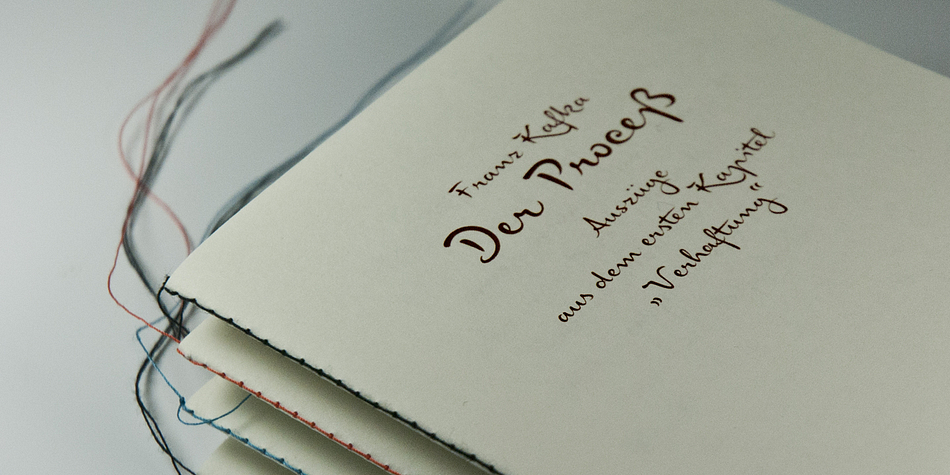 Franz Kafka
Der Proceß
Auszüge
aus dem ersten Kapitel
„Verhaftung“